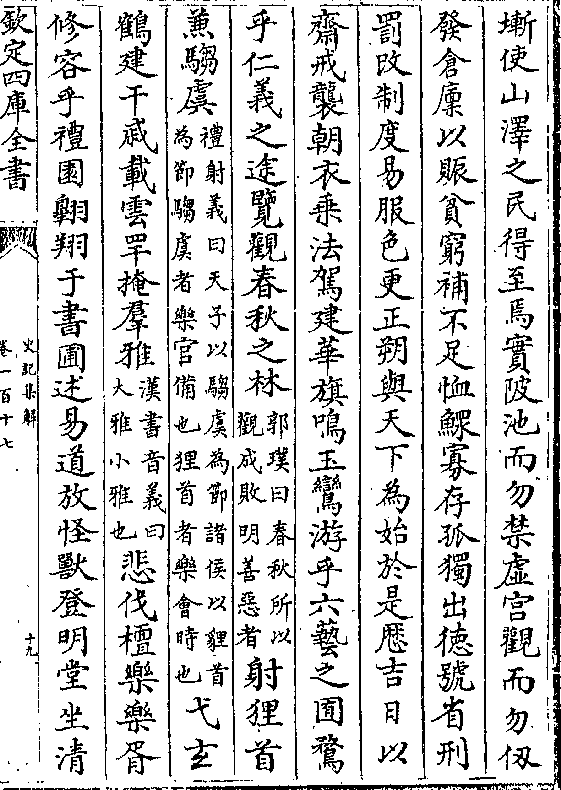 塹使山澤之民得至焉實陂池而勿禁虚宫觀而勿仭
發倉廩以賑貧窮補不足恤鰥寡存孤獨出徳號省刑
罰改制度易服色更正朔與天下為始於是歴吉日以
齋戒襲朝衣乗法駕建華旗鳴玉鸞游乎六藝之囿騖
乎仁義之途覽觀春秋之林郭璞曰春秋所以觀成敗明善惡者射狸首
蕭騶虞禮射義曰天子以騶虞為節諸侯以貍首為節騶虞者樂官備也狸首者樂會時也弋𤣥
鶴建干戚載雲䍐掩羣雅漢書音義曰大雅小雅也悲伐檀樂樂胥
修容乎禮園翺翔于書圃述易道放怪獸登明堂坐清
欽定四庫全書
史記集解
卷一百十七
十九